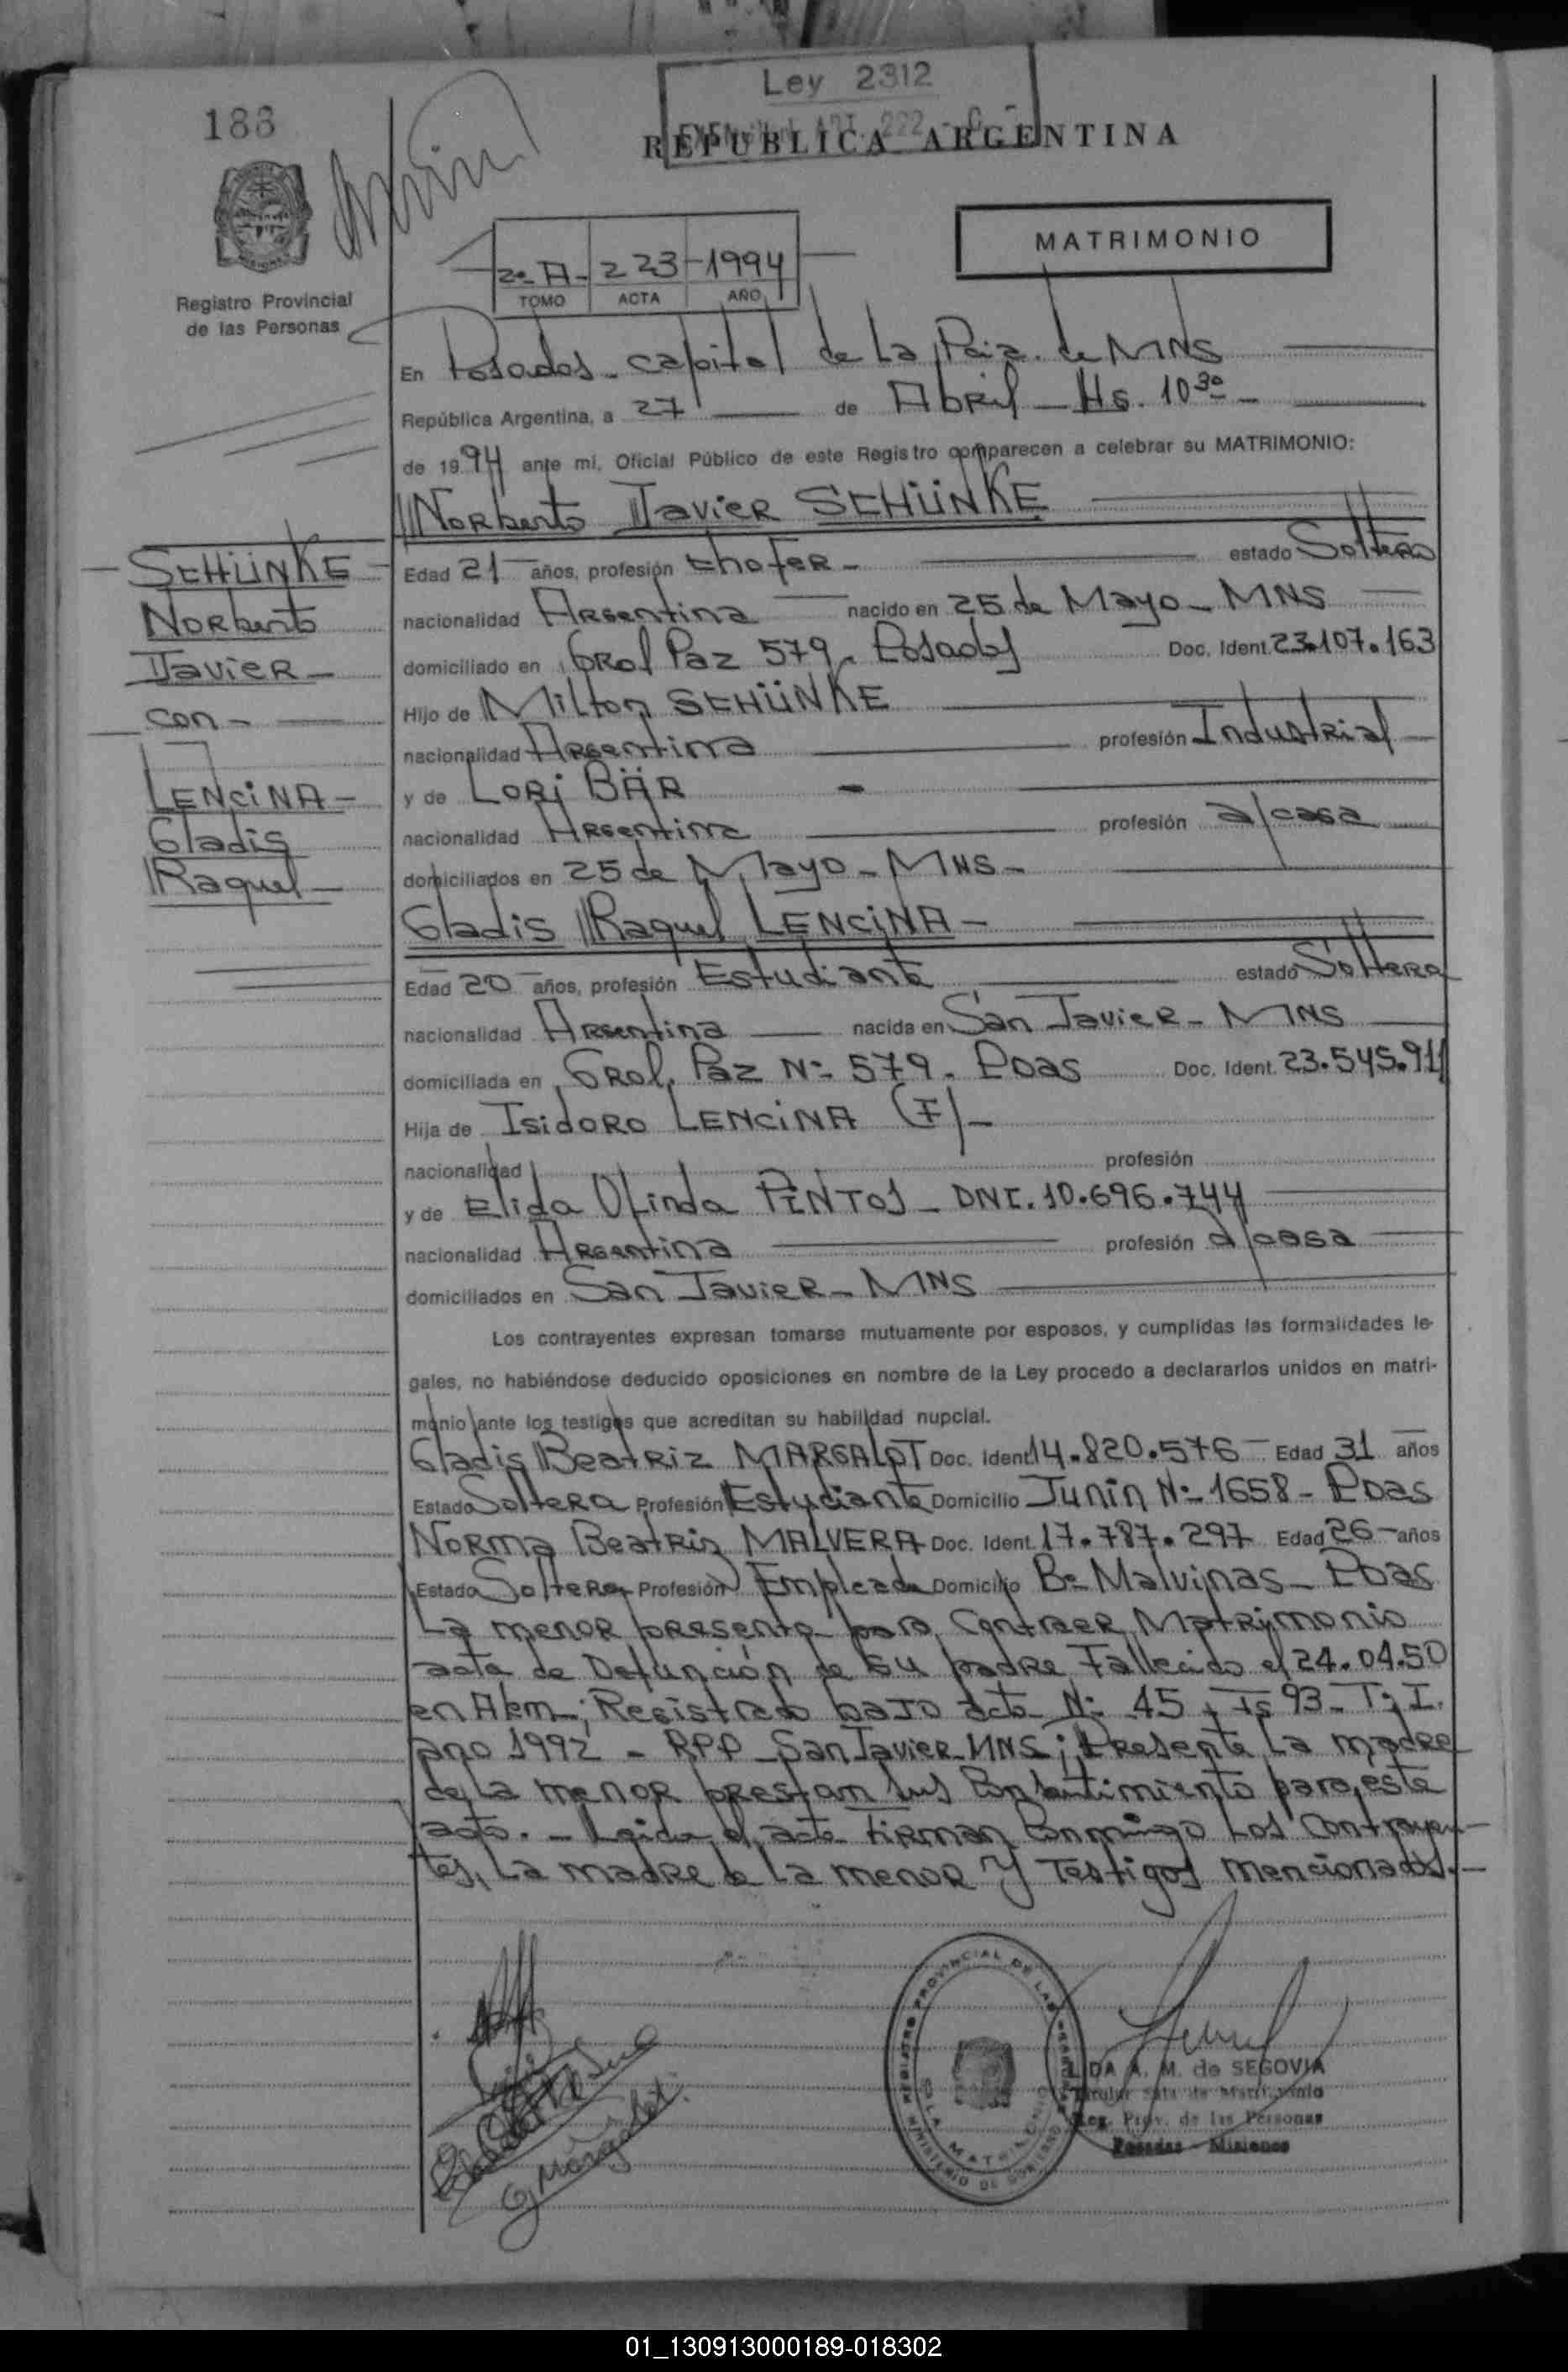 Ley 2312
188
REPUBLICA ARGENTINA
MATRIMONIO
2º A - 223 - 1994
TOMO ACTA AÑO
Registro Provincial
de las Personas
En Posadas - capital de La Pcia. de MNS
República Argentina, a 27 de Abril - Hs. 10 30 -
de 1994 ante mi, Oficial Público de este Registro comparecen a celebrar su MATRIMONIO:
Norberto Javier SCHÜNKE
SCHÜNKE
Norberto
Javier -
con -
LENCINA -
Gladis
Raquel -
Edad 21 años, profesión chofer - estado Soltero
nacionalidad Argentina nacido en 25 de Mayo - MNS
domiciliado en Gral Paz 579 - Posadas Doc. Ident. 23.107.163
Hijo de Milton SCHÜNKE
nacionalidad Argentina profesión Industrial
y de Lori BÄR -
nacionalidad Argentina profesión a/casa
domiciliados en 25 de Mayo - MNS -
Gladis Raquel LENCINA -
Edad 20 años, profesión Estudiante estado Soltera
nacionalidad Argentina nacida en San Javier - MNS
domiciliada en Gral. Paz Nº 579 - Pdas Doc. Ident. 23.545.911
Hija de Isidoro LENCINA (F) -
nacionalidad profesión
y de Elida Olinda PINTOS - DNI. 10.696.744
nacionalidad Argentina profesión a/casa
domiciliados en San Javier - MNS
Los contrayentes expresan tomarse mutuamente por esposos, y cumplidas las formalidades le-
gales, no habiéndose deducido oposiciones en nombre de la Ley procedo a declararlos unidos en matri-
monio ante los testigos que acreditan su habilidad nupcial.
Gladis Beatriz MARGALOT Doc. Ident. 14.820.576 - Edad 31 años
Estado Soltera Profesión Estudiante Domicilio Junin Nº 1658 - Pdas
Norma Beatriz MALVERA Doc. Ident. 17.787.297 Edad 26 - años
Estado Soltera Profesión Empleada Domicilio Bº Malvinas - Pdas
La menor presenta para Contraer Matrimonio
acta de Defunción de su padre Fallecido el 24.04.50
en Alem; Registrado bajo acta Nº 45 - Fs 93 - Tº I.
año 1992 - RPP - San Javier - MNS; Presente La madre
de La menor prestam sus Consentimiento para este
acto. - Leida el acta firman Conmigo Los Contrayen-
tes, La madre de La menor y Testigos mencionados. -
REGISTRO PROVINCIAL DE LAS PERSONAS
MINISTERIO DE GOBIERNO
G Margalot.
A. M. de SEGOVIA
Titular Sala de Matrimonio
Reg. Prov. de las Personas
Posadas - Misiones
01_130913000189-018302